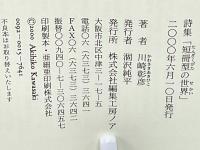 詩集『短詩型の世界』
二〇〇〇年六月一〇日発行
著者 川崎彰彦
発行者 涸沢純平
発行所 株式会社編集工房ノア
大阪市北区中津三―一七―五
電話〇六(六三七三)三六四一
FAX〇六(六三七三)三六四二
振替〇〇九四〇―七―三〇六四五七
印刷製本・亜細亜印刷株式会社
©2000 Akihiko Kawasaki
0092-0013-7641
不良本はお取り替えいたします